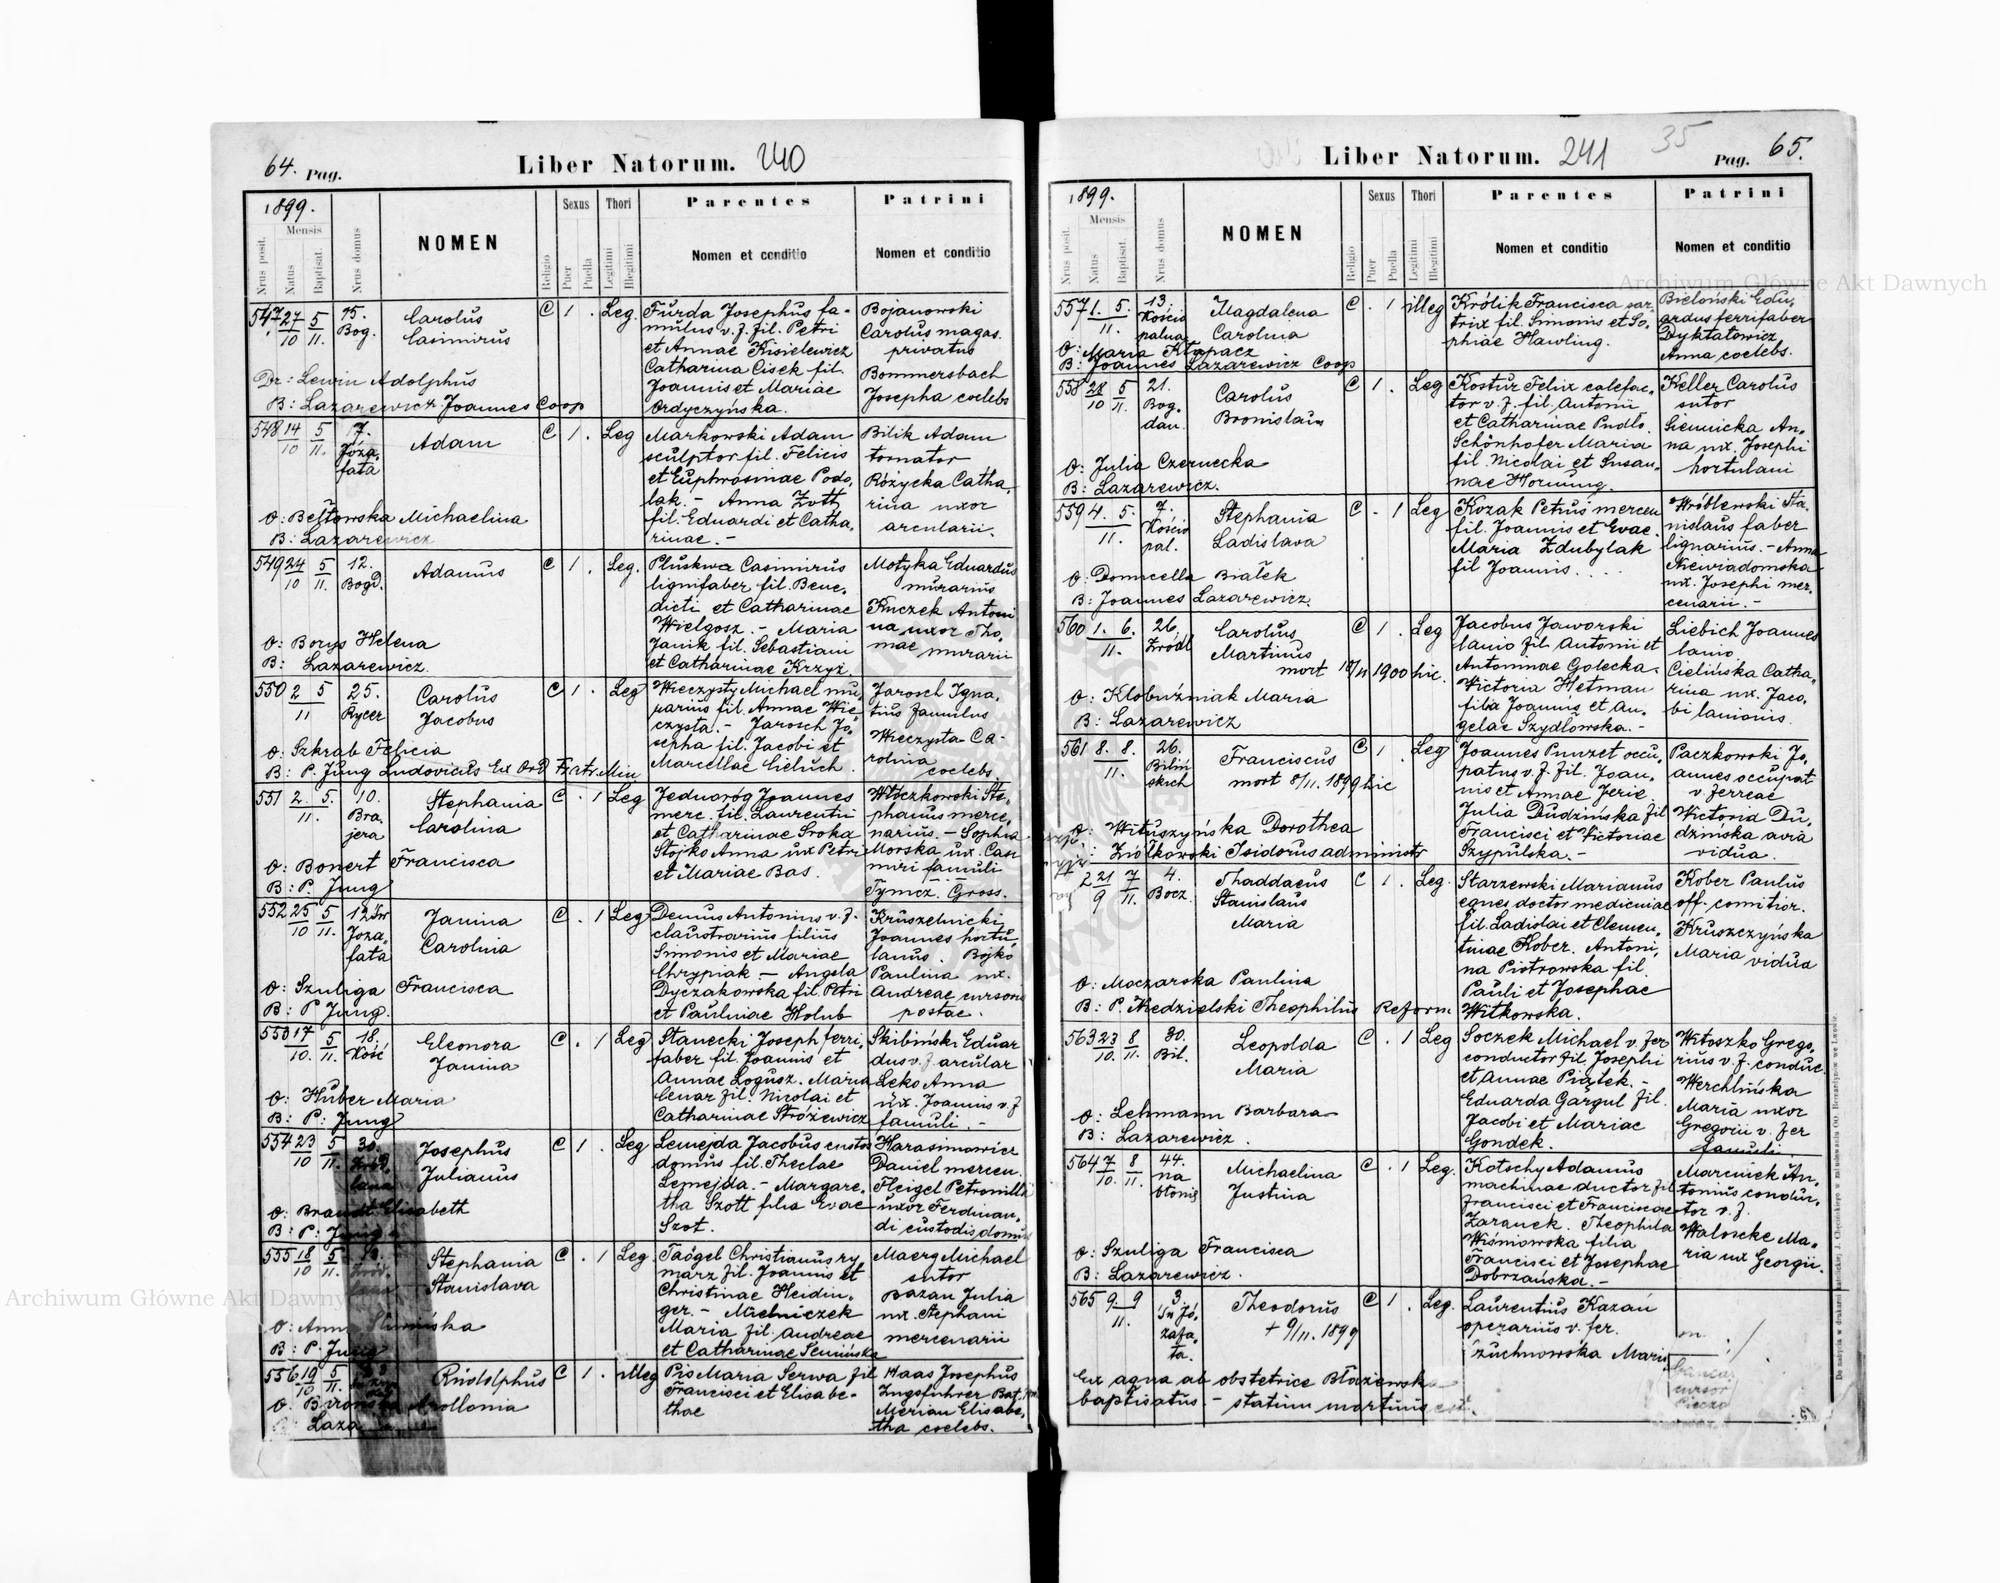 64. Pag.
Liber Natorum. 240
1899.
Mensis
Nrus posit.
Natus
Baptisat.
Nrus domus
NOMEN
Religio
Sexus
Puer
Puella
Thori
Legitimi
Illegitimi
Parentes
Nomen et conditio
Patrini
Nomen et conditio
547 27/10 5/11. 15. Bog.
Carolus
Casimirus
C 1 . Leg.
Furda Josephus fa-
mulus v. f. fil. Petri
et Annae Kisielewicz
Catharina Cisek fil.
Joannis et Mariae
Ordyczyńska.
Bojanowski
Carolus magas.
privatus
Bommersbach
Josepha coelebs
Dr: Lewin Adolphus
B: Lazarewicz Joannes Coop
548 14/10 5/11. 17. Józa,
fata
Adam
C 1 . Leg
Markowski Adam
sculptor fil. Felicis
et Euphrosinae Podo,
lak. - Anna Zott
fil. Eduardi et Catha,
rinae. -
Bilik Adam
tornator
Różycka Catha,
rina uxor
arcularii.
O: Bełtowska Michaelina
B: Lazarewicz
549 24/10 5/11. 12. Bogd.
Adamus
C 1 . Leg.
Pluskwa Casimirus
lignifaber fil. Bene,
dicti et Catharinae
Wielgosz. - Maria
Janik fil. Sebastiani
et Catharinae Krzyż.
Motyka Eduardus
murarius
Kuczek Antoni
na uxor Tho,
mae murarii
O: Borys Helena
B: Lazarewicz.
550 2 5/11 25. Rycer
Carolus
Jacobus
C 1 . Leg
Wieczysty Michael mu,
rarius fil. Annae Wie
czysta. - Jarosch Jo,
sepha fil. Jacobi et
Marcellae Cieluch.
Jarosch Igna,
tius famulus
Wieczysta Ca-
rolina
coelebs.
O: Szkrab Felicia
B: P. Jung Ludovicus Ex Ord Fratr. Min
551 2. 5./11. 10. Bra,
jera
Stephania
Carolina
C . 1 Leg
Jednoróg Joannes
merc. fil. Laurentii
et Catharinae Sroka
Stojko Anna ux Petri
et Mariae Bas.
Włoczkowski Ste,
phanus merce,
narius. - Sophia
Morska ux. Casi
miri famuli
Tymcz. Gross.
O: Bonert Francisca
B: P. Jung
552 25/10 5/11. 12 Św
Joza,
fata
Janina
Carolina
C . 1 Leg
Demus Antonius v. f.
claustrarius filius
Simonis et Mariae
Chrypiak - Angela
Dyczakowska fil. Petri
et Paulinae Holub
Kruszelnicki
Joannes hortu,
lanus. Bojko
Paulina ux.
Andreae cursoris
postae.
O: Szuliga Francisca
B: P Jung.
553 17/10. 5/11. 18. Kość
Eleonora
Janina
C . 1 Leg
Stanecki Joseph ferri,
faber fil. Joannis et
Annae Logusz. Maria
Cenar fil. Nicolai et
Catharinae Stróżewicz
Skibiński Eduar
dus v. f. arcular
Leko Anna
ux. Joannis v. f
famuli. -
O: Huber Maria
B: P: Jung
554 23/10 5/11. 30.
Josephus
Julianus
C 1 . Leg
Lemejda Jacobus custos
domus fil. Theclae
Lemejda. - Margare,
tha Szott filia Evae
Szot.
Harasimowicz
Daniel mercen.
Fleigel Petronilla
uxor Ferdinan,
di custodis domus
O: Brandt Elisabeth
B: P: Jung
555 18/10 5/11.
Stephania
Stanislava
C . 1 Leg.
Taögel Christianus ry
marz fil. Joannis et
Christinae Heidin,
ger. - Mielniczek
Maria fil. Andreae
et Catharinae Semińska
Maerg Michael
sutor
Bazan Julia
ux. Stephani
mercenarii
O: Anna
B: P. Jung
556 19/10 5/11.
Rudolphus
C 1 . illeg
Pis Maria Serwa fil
Francisci et Elisabe-
thae
Haas Josephus
Zugsführer Bat.
Merian Elisabe,
tha coelebs.
O: Apollonia
B: Laza
Liber Natorum. 241
35
Pag. 65.
1899.
Mensis
Nrus posit.
Natus
Baptisat.
Nrus domus
NOMEN
Religio
Sexus
Puer
Puella
Thori
Legitimi
Illegitimi
Parentes
Nomen et conditio
Patrini
Nomen et conditio
557 1. 5./11. 13. Kościo
palna
Magdalena
Carolina
C . 1 illeg
Królik Francisca sar
trix fil. Simonis et So,
phiae Hawling.
Bieloński Edu,
ardus ferrifaber
Dyktatowicz
Anna coelebs.
O: Maria Kłapacz
B: Joannes Lazarewicz Coop
558 28/10 5/11. 21. Bog,
dan.
Carolus
Bronislaus
C 1 . Leg
Kostur Felix calefac,
tor v. f. fil. Antonii
et Catharinae Pudło.
Schönhofer Maria
fil. Nicolai et Susan,
nae Hornung.
Keller Carolus
sutor
Siennicka An,
na ux. Josephi
hortulani
O: Julia Czernecka
B: Lazarewicz.
559 4. 5./11. 7. Kościo
pal.
Stephania
Ladislava
C . 1 Leg
Kozak Petrus mercen
fil. Joannis et Evae
Maria Zdubylak
fil Joannis. . . .
Wróblewski Sta,
nislaus faber
lignarius. - Anna
Niewiadomska
ux. Josephi mer,
cenarii. -
O: Domicella Białek
B: Joannes Lazarewicz.
560 1. 6./11. 26. Źródl
Carolus
Martinus
mort 1900 hic.
C 1 . Leg
Jacobus Jaworski
lanio fil Antonii et
Antoninae Golecka.
Victoria Hetman
filia Joannis et An,
gelae Szydłowska. -
Liebich Joannes
lanio
Cielińska Catha,
rina ux. Jaco,
bi lanionis.
O: Kłobuźniak Maria
B: Lazarewicz
561 8. 8./11. 26. Biliń
skich
Franciscus
mort 8/11. 1899 hic
C 1 . Leg
Joannes Punzet occu,
patus v. f. fil. Joan,
nis et Annae Jerie
Julia Dudzińska fil
Francisci et Victoriae
Szypulska. -
Paczkowski Jo,
annes occupat
v. ferreae
Victoria Du,
dzińska avia
vidua.
O: Wituszyńska Dorothea
Ziółkowski Isidorus administr
2 21/9 7/11. 4. Bocz.
Thaddaeus
Stanislaus
Maria
C 1 . Leg.
Starzewski Marianus
eques doctor medicinae
fil. Ladislai et Clemen,
tinae Kober. Antoni,
na Piotrowska fil.
Pauli et Josephae
Witkowska.
Kober Paulus
off. comitior.
Kruszczyńska
Maria vidua
O: Moczarska Paulina
B: P. Niedzielski Theophilus Reform
563 23/10. 8/11. 30. Bil.
Leopolda
Maria
C . 1 Leg
Soczek Michael v. fer
conductor fil Josephi
et Annae Piątek. -
Eduarda Gargul fil.
Jacobi et Mariae
Gondek.
Witoszko Grego,
rius v. f. conduc.
Werchlińska
Maria uxor
Gregorii v. fer
famuli.
O: Lehmann Barbara
B: Lazarewicz.
564 7/10. 8/11. 44. na
błonie
Michaelina
Justina
C . 1 Leg.
Kotschy Adamus
machinae ductor fil
Francisci et Franciscae
Zaranek. Theophila
Wiśniowska filia
Francisci et Josephae
Dobrzańska. -
Marciniek An,
tonius conduc,
tor v. f.
Waloscke Ma,
ria ux Georgii.
O: Szuliga Francisca
B: Lazarewicz.
565 9. 9/11. 3. Św Jó,
zafa,
ta.
Theodorus
+ 9/11. 1899
C 1 . Leg.
Laurentius Kazań
operarius v. fer.
Żuchnowska Maria
m.
cursor
Ex aqua ab obstetrice Błażewska
baptisatus - statim mortuus est.
De nabycia w drukarni katolickiej J. Chęcińskiego w zabudowaniu OO. Bernardynów we Lwowie.
Archiwum Główne Akt Dawnych
Archiwum Główne Akt Dawnych